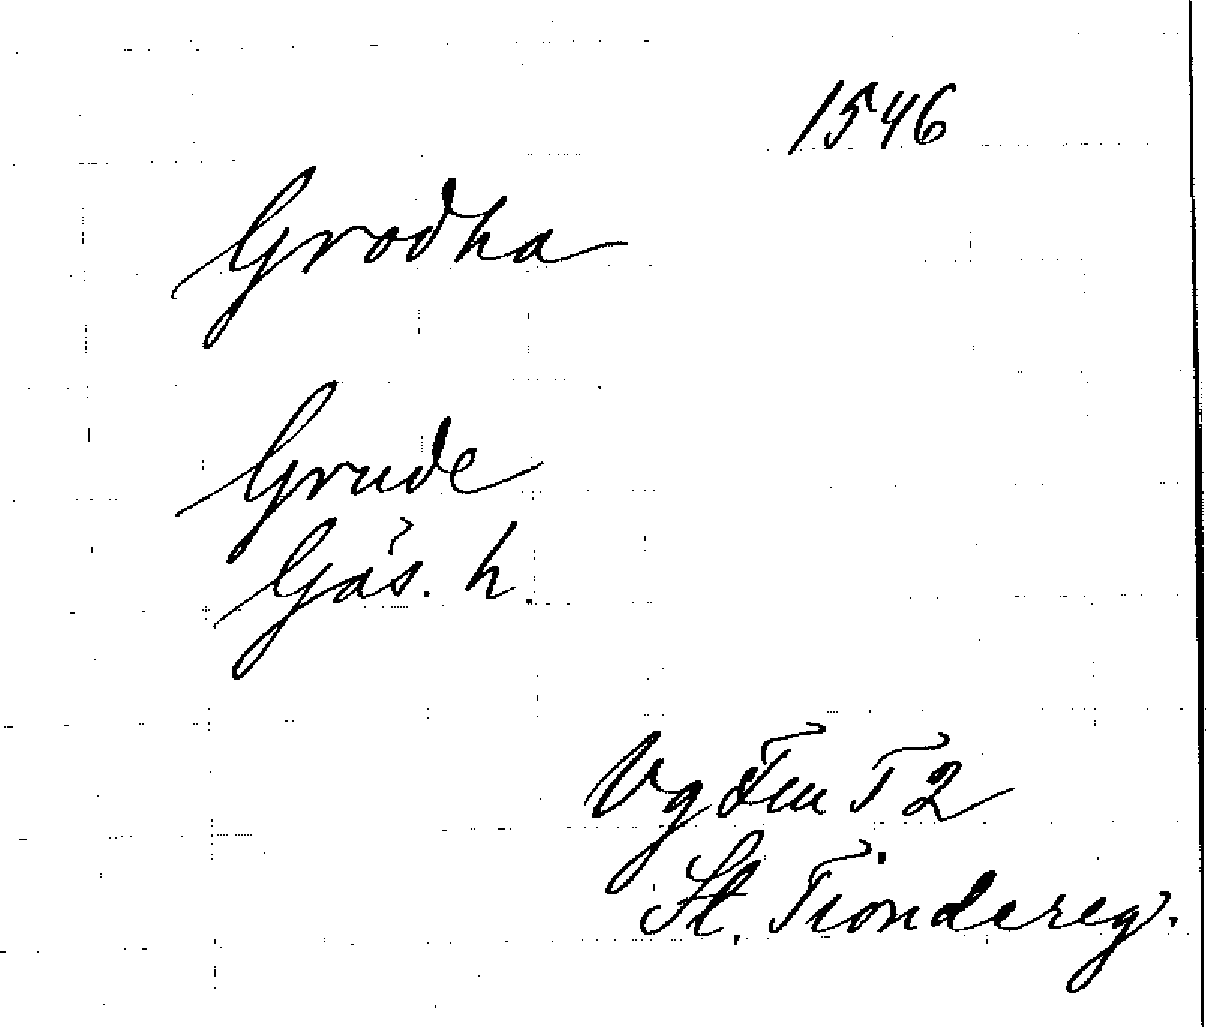 1546
Grodha
Grude
Gäs. h.
Vg Fru T 2
St. Tiondereg.